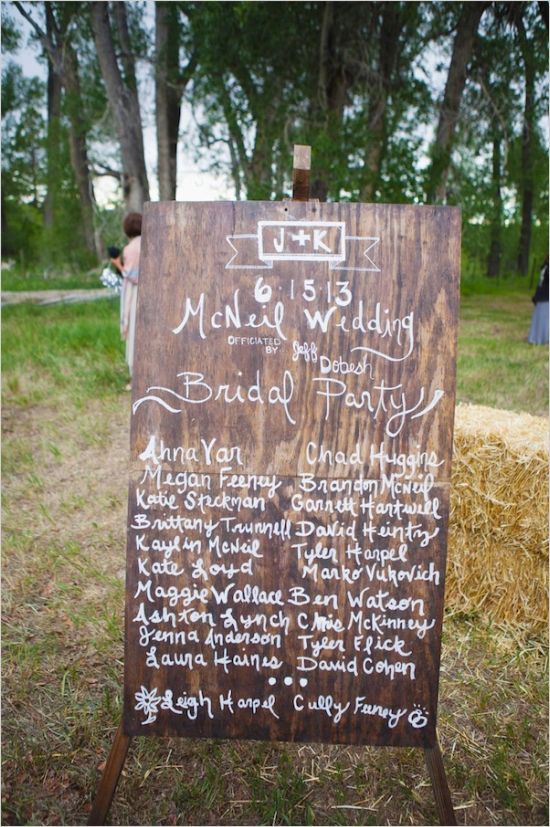 J+K
6.15.13
McNeil Wedding
OFFICIATED BY Jeff Dobesh
Bridal Party
Anna Var Chad Huggins
Megan Feeney Brandon McNeil
Katie Steckman Garrett Hartwell
Brittany Trunnell David Heintz
Kaylin McNeil Tyler Harpel
Kate Loyd Marko Vukovich
Maggie Wallace Ben Watson
Ashton Lynch Chris McKinney
Jenna Anderson Tyler Flick
Laura Haines David Cohen
Leigh Harpel Cully Feeney